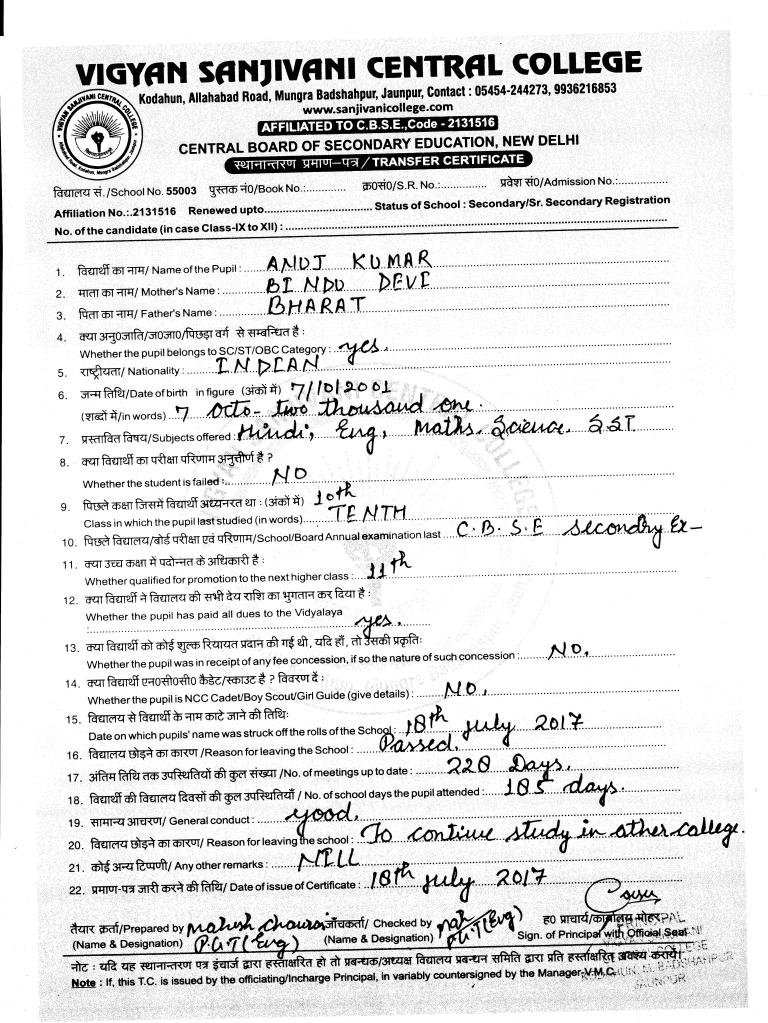 VIGYAN SANJIVANI CENTRAL COLLEGE
Kodahun, Allahabad Road, Mungra Badshahpur, Jaunpur, Contact : 05454-244273, 9936216853
www.sanjivanicollege.com
AFFILIATED TO C.B.S.E.,Code - 2131516
CENTRAL BOARD OF SECONDARY EDUCATION, NEW DELHI
स्थानान्तरण प्रमाण-पत्र / TRANSFER CERTIFICATE
विद्यालय सं./School No. 55003 पुस्तक नं0/Book No.:............. क्र0सं0/S.R. No.:............... प्रवेश सं0/Admission No.:................
Affiliation No.:.2131516 Renewed upto................................... Status of School : Secondary/Sr. Secondary Registration
No. of the candidate (in case Class-IX to XII) : ................................
1. विद्यार्थी का नाम/ Name of the Pupil : ANUJ KUMAR
2. माता का नाम/ Mother's Name : BINDU DEVI
3. पिता का नाम/ Father's Name : BHARAT
4. क्या अनु0जाति/ज0जा0/पिछड़ा वर्ग से सम्बन्धित है :
Whether the pupil belongs to SC/ST/OBC Category : yes.
5. राष्ट्रीयता/ Nationality : INDIAN
6. जन्म तिथि/Date of birth in figure (अंकों में) 7/10/2001
(शब्दों में/in words) 7 Octo- two thousand one.
7. प्रस्तावित विषय/Subjects offered : Hindi, Eng, Maths, Science. SST
8. क्या विद्यार्थी का परीक्षा परिणाम अनुत्तीर्ण है ?
Whether the student is failed : NO
9. पिछले कक्षा जिसमें विद्यार्थी अध्यनरत था : (अंकों में) 10th
Class in which the pupil last studied (in words) TENTH
10. पिछले विद्यालय/बोर्ड परीक्षा एवं परिणाम/School/Board Annual examination last C.B.S.E secondry Ex-
11. क्या उच्च कक्षा में पदोन्नत के अधिकारी है :
Whether qualified for promotion to the next higher class : 11th
12. क्या विद्यार्थी ने विद्यालय की सभी देय राशि का भुगतान कर दिया है :
Whether the pupil has paid all dues to the Vidyalaya
: yes.
13. क्या विद्यार्थी को कोई शुल्क रियायत प्रदान की गई थी, यदि हाँ, तो उसकी प्रकृतिः
Whether the pupil was in receipt of any fee concession, if so the nature of such concession : NO.
14. क्या विद्यार्थी एन0सी0सी0 कैडेट/स्काउट है ? विवरण दें :
Whether the pupil is NCC Cadet/Boy Scout/Girl Guide (give details) : NO.
15. विद्यालय से विद्यार्थी के नाम काटे जाने की तिथिः
Date on which pupils' name was struck off the rolls of the School : 18th july 2017
16. विद्यालय छोड़ने का कारण /Reason for leaving the School : Passed.
17. अंतिम तिथि तक उपस्थितियों की कुल संख्या /No. of meetings up to date : 220 Days.
18. विद्यार्थी की विद्यालय दिवसों की कुल उपस्थितियाँ / No. of school days the pupil attended : 185 days.
19. सामान्य आचरण/ General conduct : good.
20. विद्यालय छोड़ने का कारण/ Reason for leaving the school : To continue study in other college.
21. कोई अन्य टिप्पणी/ Any other remarks : NILL
22. प्रमाण-पत्र जारी करने की तिथि/ Date of issue of Certificate : 18th july 2017
तैयार क्रर्ता/Prepared by Mahesh जाँचकर्ता/ Checked by ह0 प्राचार्य/कार्यालय मोहर
(Name & Designation) P.G.T(Eng) (Name & Designation) P.G.T(Eng) Sign. of Principal with Official Seal
नोट : यदि यह स्थानान्तरण पत्र इंचार्ज द्वारा हस्ताक्षरित हो तो प्रबन्धक/अध्यक्ष विद्यालय प्रबन्धन समिति द्वारा प्रति हस्ताक्षरित अवश्य करायें।
Note : If, this T.C. is issued by the officiating/Incharge Principal, in variably countersigned by the Manager-V.M.C.